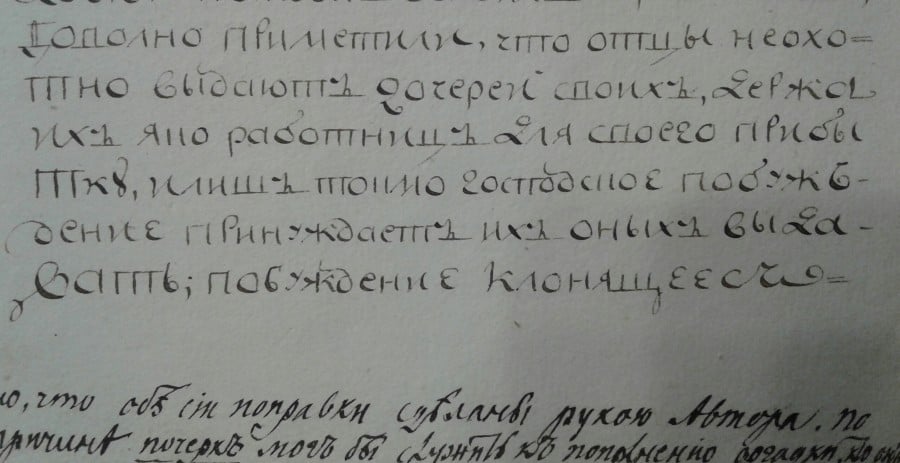 Дополно приметили, что отцы неохо=
тно выдаютъ дочерей своихъ, держа
ихъ яко работницъ для своего прибы
ткꙋ, и лишъ токмо господское побуж-
дение принуждаетъ ихъ оныхъ выда-
вать; побуждение клонящееся
ю, что обѣ сіи поправки сдѣланы рукою Автора. по
причинѣ почеркъ могъ бы служить къ пополненію